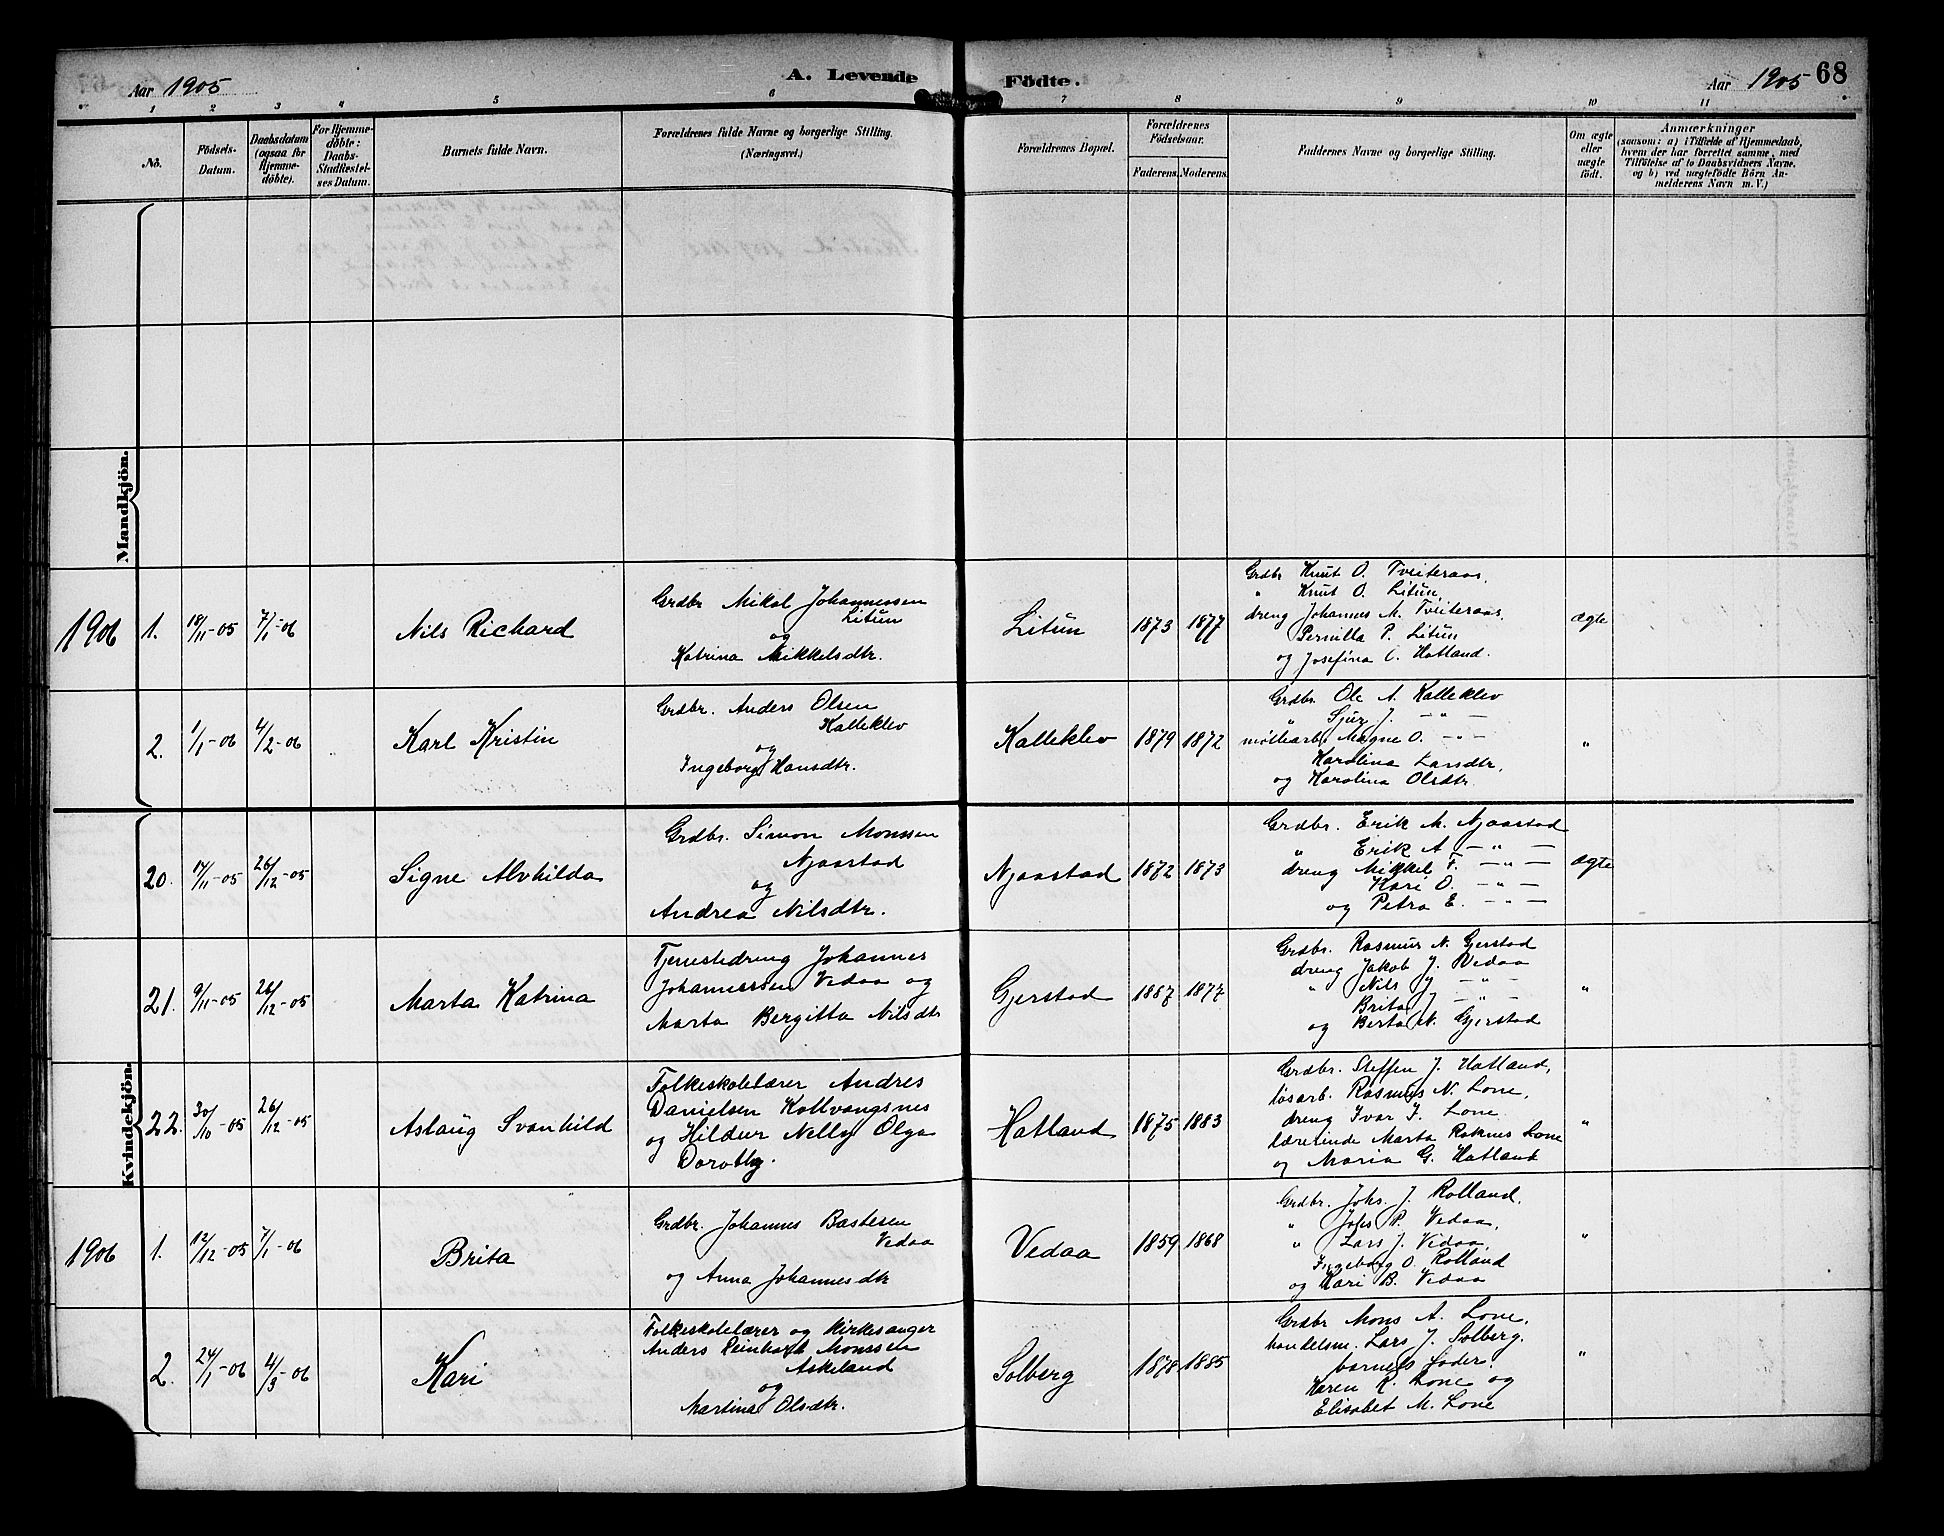 Aar 1905
A. Levende Födte.
Aar 1905
68
1 2 3 4 5 6 7 8 9 10 11
No.
Födsels-
Datum.
Daabsdatum
(ogsaa for
Hjemme-
döbte).
For Hjemme-
döbte:
Daabs-
Stadfæstel-
ses Datum.
Barnets fulde Navn.
Forældrenes fulde Navne og borgerlige Stilling.
(Næringsvei.)
Forældrenes Bopæl.
Forældrenes
Födselsaar.
Faderens. Moderens.
Faddernes Navne og borgerlige Stilling.
Om ægte
eller
uægte
födt.
Anmærkninger
(saasom: a) i Tilfælde af Hjemmedaab,
hvem der har forrettet samme, med
Tilföielse af to Daabsvidners Navne,
og b) ved uægtefödte Börn An-
melderens Navn m. V.)
Mandkjön.
1906
1.
18/11-05
7/1-06
Nils Richard
Grdbr Mikal Johannessen
Litun
og
Katrina Mikkelsdtr.
Litun
1873
1877
Grdbr Knut O. Tveiteraas,
" Knut O. Litun,
dreng Johannes M. Tveiteraas,
Pernilla P. Litun
og Josefina O. Hatland.
ægte
2.
1/1-06
4/2-06
Karl Kristin
Grdbr. Anders Olsen
Kalleklev
og
Ingeborg Hansdtr.
Kalleklev
1879
1872
Grdbr. Ole A. Kalleklev
" Sjur J. — " —
møllearb. Magne O. — " —
Karolina Larsdtr,
og Karolina Olsdtr.
"
Kvindekjön.
20.
17/11-05
26/12-05
Signe Alvhilda
Grdbr. Simon Monssen
Njaastad
og
Andrea Nilsdtr.
Njaastad
1872
1873
Grdbr. Erik M. Njaastad
" Erik A. — " —
dreng Mikkel F. — " —
Kari O. — " —
og Petra E. — " —
ægte
21.
9/11-05
26/12-05
Marta Katrina
Tjenestedreng Johannes
Johannessen Vedaa og
Marta Bergitta Nilsdtr
Gjerstad
1887
1877
Grdbr. Rasmus N. Gjerstad
dreng Jakob J. Vedaa
" Nils J. — " —
Brita J. — " —
og Berta N. Gjerstad
"
22.
30/10-05
26/12-05
Aslaug Svanhild
Folkeskolelærer Andres
Danielsen Kollvangsnes
og Hildur Nelly Olga
Dorothy.
Hatland
1875
1883
Grdbr. Steffen J. Hatland,
løsarb. Rasmus N. Lone,
dreng Ivar I. Lone
lærerinde Marta Raknes Lone
og Maria G. Hatland
"
1906
1.
12/12-05
7/1-06
Brita
Grdbr. Johannes Bastesen
Vedaa
og Anna Johannesdtr
Vedaa
1859
1868
Grdbr. Johs. J. Rolland,
" Johs P. Vedaa,
" Lars J. Vedaa,
Ingeborg O. Rolland
og Kari B. Vedaa
"
2.
24/1-06
4/3-06
Kari
Folkeskolelærer og kirkesanger
Anders Reinhardt Monssen
Askeland
og
Martina Olsdtr.
Solberg
1878
1885
Grdbr Mons A. Lone,
handelsm. Lars J. Solberg,
barnets fader.
Karen R. Lone og
Elisabet M. Lone
"